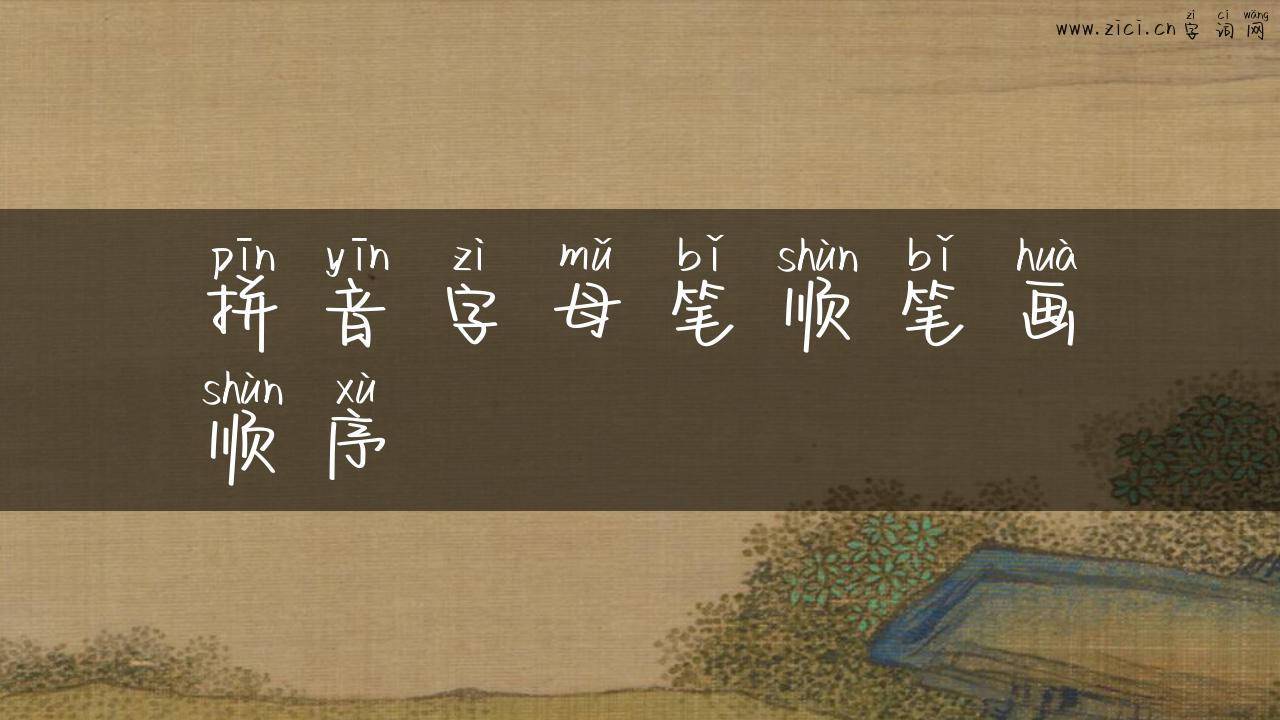 zì cí wǎng
www.zici.cn 字词网
pīn yīn zì mǔ bǐ shùn bǐ huà
拼音字母笔顺笔画
shùn xù
顺序